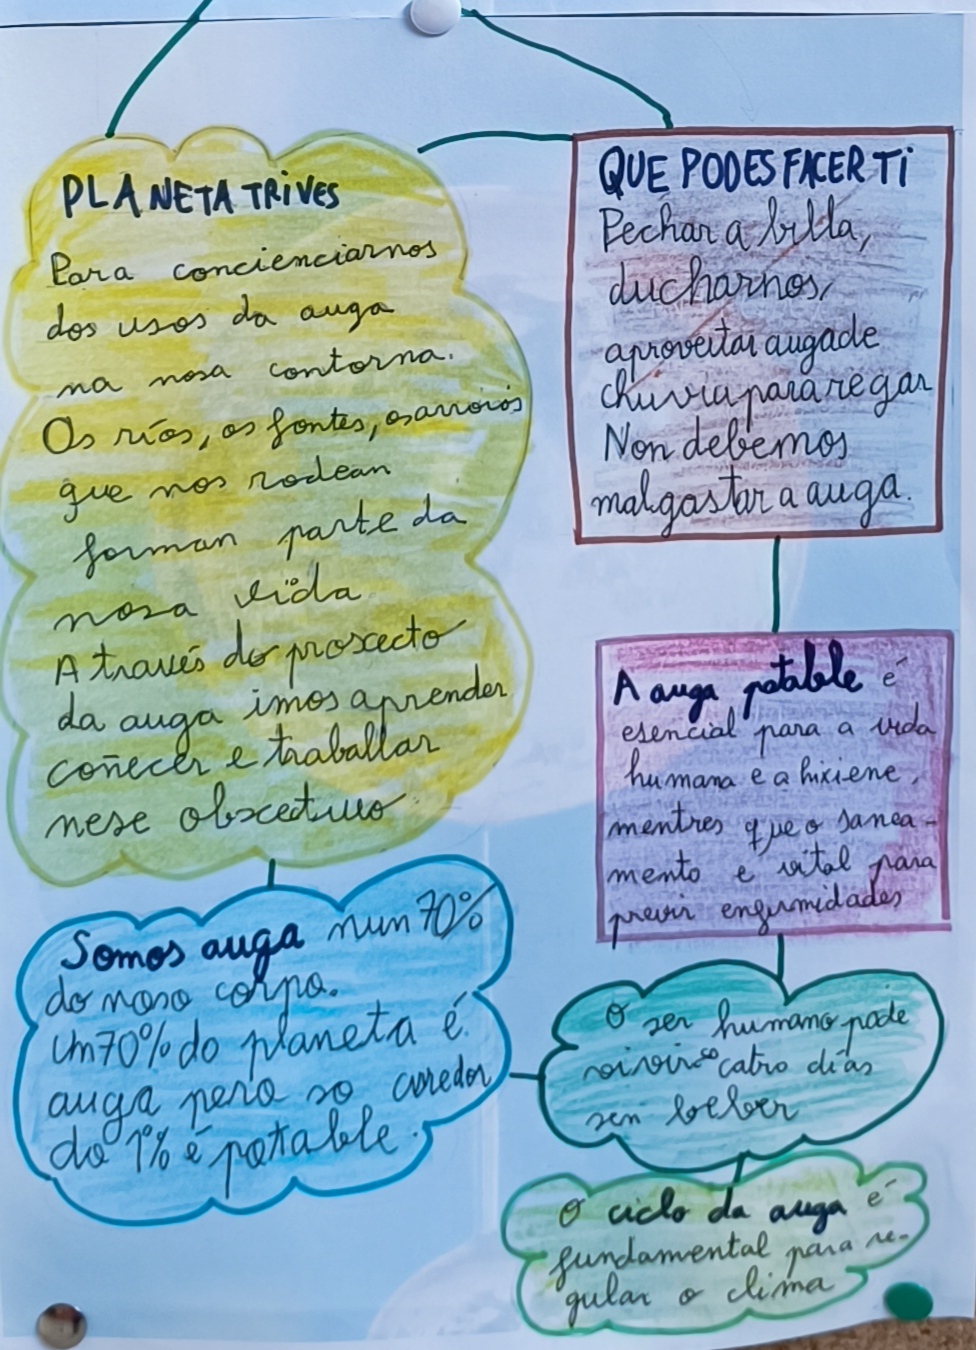 PLANETA TRIVES
Para concienciarnos
dos usos da auga
na nosa contorna.
Os ríos, os fontes, os arroiós
que nos rodean
forman parte da
nosa vida
A través do proxecto
da auga imos aprender
coñecer e traballar
nese obxectivo
QUE PODES FACER TI
Pechar a billa,
ducharnos,
aproveitar auga de
chuvia para regar
Non debemos
malgastar a auga.
A auga potable é
esencial para a vida
humana e a hixiene,
mentres que o sanea-
mento e vital para
previr enfermidades
Somos auga nun 70%
do noso corpo.
Un 70% do planeta é
auga pero so arredor
do 1% é potable.
O ser humano pode
vivir so catro días
sen beber
O ciclo da auga é
fundamental para re-
gular o clima